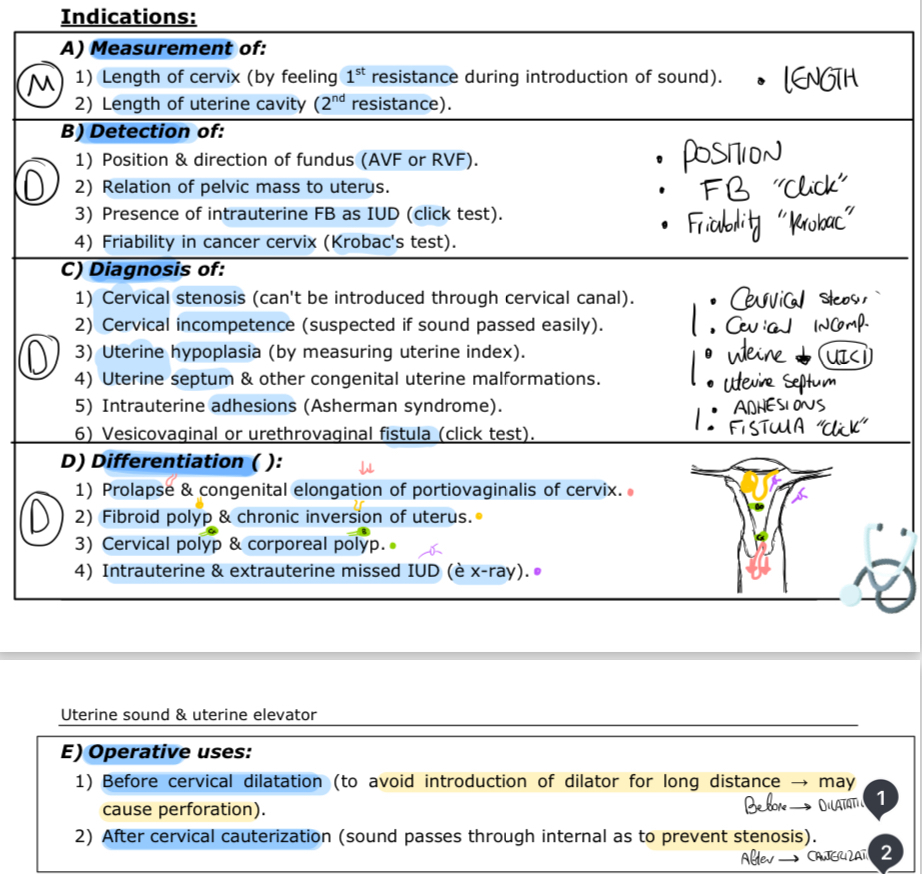 Indications:
A) Measurement of:
M
1) Length of cervix (by feeling 1st resistance during introduction of sound).
2) Length of uterine cavity (2nd resistance).
• LENGTH
B) Detection of:
D
1) Position & direction of fundus (AVF or RVF).
2) Relation of pelvic mass to uterus.
3) Presence of intrauterine FB as IUD (click test).
4) Friability in cancer cervix (Krobac's test).
• POSITION
• FB "Click"
• Friability "Krobac"
C) Diagnosis of:
D
1) Cervical stenosis (can't be introduced through cervical canal).
2) Cervical incompetence (suspected if sound passed easily).
3) Uterine hypoplasia (by measuring uterine index).
4) Uterine septum & other congenital uterine malformations.
5) Intrauterine adhesions (Asherman syndrome).
6) Vesicovaginal or urethrovaginal fistula (click test).
• Cervical
• Cevical INCOMP.
• uteine ↓
• uterine septum
• ADHESIONS
• FISTULA "Click"
D) Differentiation ( ):
D
1) Prolapse & congenital elongation of portiovaginalis of cervix.
2) Fibroid polyp & chronic inversion of uterus.
3) Cervical polyp & corporeal polyp.
4) Intrauterine & extrauterine missed IUD (è x-ray).
Uterine sound & uterine elevator
E) Operative uses:
1) Before cervical dilatation (to avoid introduction of dilator for long distance → may
cause perforation).
Before → DILATATI
1
2) After cervical cauterization (sound passes through internal as to prevent stenosis).
After → CAUTERIZATI
2